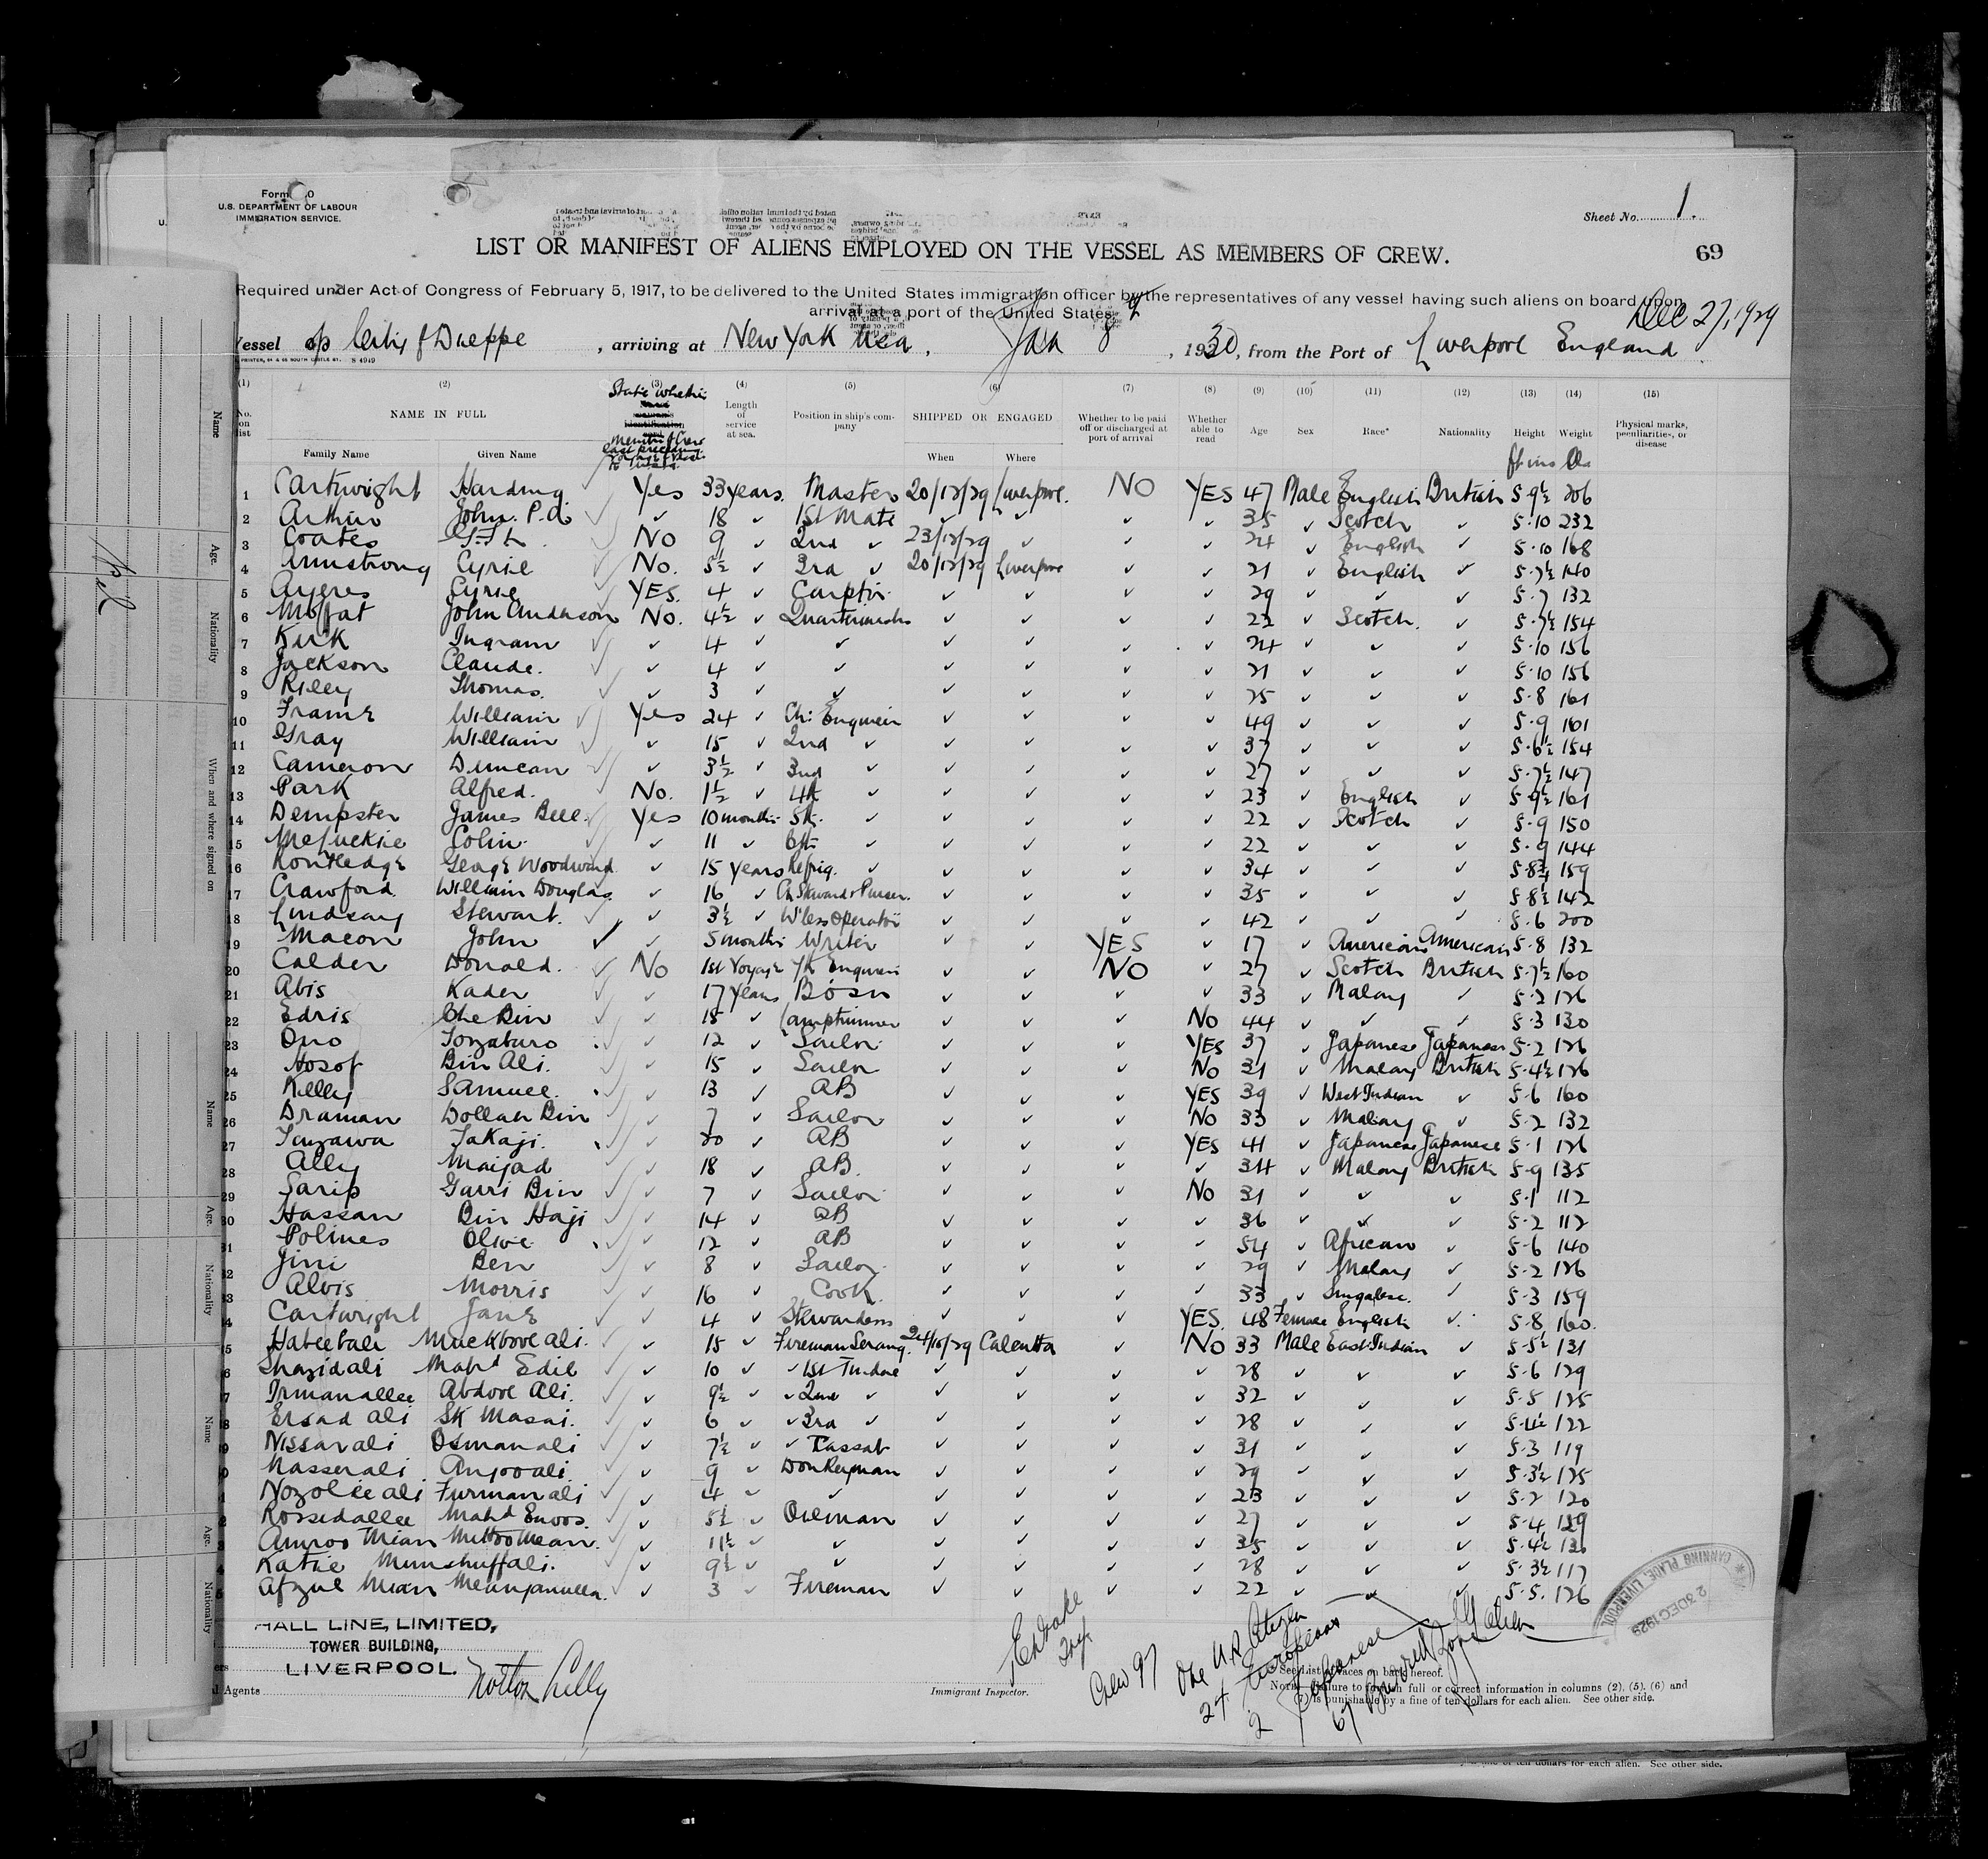 Form 0
U.S. DEPARTMENT OF LABOUR
IMMIGRATION SERVICE.
Sheet No. 1.
LIST OR MANIFEST OF ALIENS EMPLOYED ON THE VESSEL AS MEMBERS OF CREW.
69
Required under Act of Congress of February 5, 1917, to be delivered to the United States immigration officer by the representatives of any vessel having such aliens on board upon
arrival at a port of the United States.
Dec 27, 1929
Vessel City of Dieppe, arriving at New York USA, Jan 8, 1930, from the Port of Liverpool England
(1) (2) (3) (4) (5) (6) (7) (8) (9) (10) (11) (12) (13) (14) (15)
No. on list NAME IN FULL State whether Member of Crew last preceding voyage Length of service at sea. Position in ship's company SHIPPED OR ENGAGED Whether to be paid off or discharged at port of arrival Whether able to read Age Sex Race* Nationality Height Weight Physical marks, peculiarities, or disease
Family Name Given Name When Where ft ins lbs
1 Cartwright Harding Yes 33 years. Master 20/12/29 Liverpool. NO YES 47 Male English British 5·9½ 206
2 Arthur John. P. ✓ 18 ✓ 1st Mate ✓ ✓ ✓ ✓ 35 ✓ Scotch ✓ 5·10 232
3 Coates No 9 ✓ 2nd ✓ 23/12/29 ✓ ✓ ✓ 24 ✓ English ✓ 5·10 168
4 Armstrong Cyril No. 5½ ✓ 3rd ✓ 20/12/29 Liverpool ✓ ✓ 21 ✓ English ✓ 5·7½ 140
5 Ayeres Cyril YES. 4 ✓ Carptr. ✓ ✓ ✓ ✓ 29 ✓ ✓ ✓ 5·7 132
6 Moffat John Anderson No. 4½ ✓ Quartermaster ✓ ✓ ✓ ✓ 22 ✓ Scotch. ✓ 5·7½ 154
7 Kirk Ingram ✓ 4 ✓ ✓ ✓ ✓ ✓ ✓ 24 ✓ ✓ ✓ 5·10 156
8 Jackson Claude. ✓ 4 ✓ ✓ ✓ ✓ ✓ ✓ 21 ✓ ✓ ✓ 5·10 156
9 Riley Thomas. ✓ 3 ✓ ✓ ✓ ✓ ✓ ✓ 25 ✓ ✓ ✓ 5·8 161
10 Frame William Yes 24 ✓ Ch: Engineer ✓ ✓ ✓ ✓ 49 ✓ ✓ ✓ 5·9 161
11 Gray William ✓ 15 ✓ 2nd ✓ ✓ ✓ ✓ ✓ 37 ✓ ✓ ✓ 5·6½ 154
12 Cameron Duncan ✓ 3½ ✓ 3rd ✓ ✓ ✓ ✓ ✓ 27 ✓ ✓ ✓ 5·7½ 147
13 Park Alfred. No. 1½ ✓ 4th ✓ ✓ ✓ ✓ ✓ 23 ✓ English ✓ 5·9½ 161
14 Dempster James Bell. Yes 10 months 5th. ✓ ✓ ✓ ✓ ✓ 22 ✓ Scotch ✓ 5·9 150
15 McLuckie Colin. ✓ 11 ✓ 6th ✓ ✓ ✓ ✓ ✓ 22 ✓ ✓ ✓ 5·9 144
16 Routledge George Woodward ✓ 15 years Refrig. ✓ ✓ ✓ ✓ ✓ 34 ✓ ✓ ✓ 5·8¾ 159
17 Crawford. William Douglas ✓ 16 ✓ Ch Steward & Purser. ✓ ✓ ✓ ✓ 35 ✓ ✓ ✓ 5·8½ 142
18 Lindsay Stewart. ✓ 3½ ✓ W'less Operator ✓ ✓ ✓ ✓ 42 ✓ ✓ ✓ 5·6 200
19 Macon John ✓ 5 months Writer ✓ ✓ YES ✓ 17 ✓ American American 5·8 132
20 Calder Donald. No 1st Voyage 7th Engineer ✓ ✓ NO ✓ 27 ✓ Scotch British 5·7½ 160
21 Abis Kader ✓ 17 years Bosn ✓ ✓ ✓ ✓ 33 ✓ Malay ✓ 5·2 126
22 Edris Che Bin ✓ 18 ✓ Lamptrimmer ✓ ✓ ✓ No 44 ✓ ✓ ✓ 5·3 130
23 Ono Tonzaburo ✓ 12 ✓ Sailor ✓ ✓ ✓ YES 37 ✓ Japanese Japanese 5·2 126
24 Hosof Bin Ali. ✓ 15 ✓ Sailor ✓ ✓ ✓ No 31 ✓ Malay British 5·4½ 126
25 Kelley Samuel. ✓ 13 ✓ AB ✓ ✓ ✓ YES 39 ✓ West Indian ✓ 5·6 160
26 Draman Dollah Bin ✓ 7 ✓ Sailor ✓ ✓ ✓ No 33 ✓ Malay ✓ 5·2 132
27 Inzawa Takaji. ✓ 20 ✓ AB ✓ ✓ ✓ YES 41 ✓ Japanese Japanese 5·1 126
28 Ally Maijad ✓ 18 ✓ AB. ✓ ✓ ✓ ✓ 34 ✓ Malay British 5·9 135
29 Sarip Garri Bin ✓ 7 ✓ Sailor ✓ ✓ ✓ No 31 ✓ ✓ ✓ 5·1 112
30 Hassan Bin Haji ✓ 14 ✓ AB ✓ ✓ ✓ ✓ 36 ✓ ✓ ✓ 5·2 112
31 Polines Olive ✓ 12 ✓ AB ✓ ✓ ✓ ✓ 54 ✓ African ✓ 5·6 140
32 Jini Ben ✓ 8 ✓ Sailor ✓ ✓ ✓ ✓ 29 ✓ Malay ✓ 5·2 126
33 Alvis Morris ✓ 16 ✓ Cook ✓ ✓ ✓ ✓ 33 ✓ Singalese. ✓ 5·3 159
4 Cartwright Jane ✓ 4 ✓ Stewardess ✓ ✓ ✓ YES. 48 Female English ✓ 5·8 160.
5 Habeebali Muckbool Ali. ✓ 15 ✓ Fireman Serang. 24/10/29 Calcutta ✓ No 33 Male East Indian ✓ 5·5½ 131
6 Shazidali Mahd Edil ✓ 10 ✓ ✓ 1st Tindal ✓ ✓ ✓ ✓ 28 ✓ ✓ ✓ 5·6 129
7 Irmanallee Abdool Ali. ✓ 9½ ✓ ✓ 2nd ✓ ✓ ✓ ✓ ✓ 32 ✓ ✓ ✓ 5·5 125
8 Ersad Ali Sk Masai. ✓ 6 ✓ ✓ 3rd ✓ ✓ ✓ ✓ ✓ 28 ✓ ✓ ✓ 5·4½ 122
9 Nissarali Osmanali ✓ 7½ ✓ ✓ Cassab ✓ ✓ ✓ ✓ 31 ✓ ✓ ✓ 5·3 119
0 Nasserali Anjooali ✓ 9 ✓ Donkeyman ✓ ✓ ✓ ✓ 29 ✓ ✓ ✓ 5·3½ 125
1 Nozolie ali Furmanali ✓ 4 ✓ ✓ ✓ ✓ ✓ ✓ 23 ✓ ✓ ✓ 5·2 120
2 Rossedallee Mahd Enoos. ✓ 5½ ✓ Oilman ✓ ✓ ✓ ✓ 27 ✓ ✓ ✓ 5·4 129
3 Amroo Mian Mittoo Mean. ✓ 11½ ✓ ✓ ✓ ✓ ✓ ✓ 35 ✓ ✓ ✓ 5·4½ 136
4 Katie Munshuffali. ✓ 9½ ✓ ✓ ✓ ✓ ✓ ✓ 28 ✓ ✓ ✓ 5·3½ 117
5 Afzul Mian Meanjanulla. ✓ 3 ✓ Fireman ✓ ✓ ✓ ✓ 22 ✓ ✓ ✓ 5·5. 126
HALL LINE, LIMITED,
TOWER BUILDING,
LIVERPOOL.
Agents Norton Lilly
Immigrant Inspector.
Crew 97
One U.S. Citizen
24 Europeans
2 Japanese
CANNING PLACE, LIVERPOOL
23 DEC 1929
See List of races on back hereof.
Note.—Failure to furnish full or correct information in columns (2), (5), (6) and
(7) is punishable by a fine of ten dollars for each alien. See other side.
of ten dollars for each alien. See other side.
Name
Age.
Nationality
When and where signed on
Name
Age.
Nationality
Name
Age.
Nationality